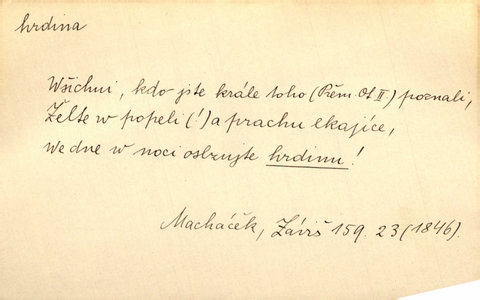 hrdina
Wšichni, kdo jste krále toho (Přem. Ot II) poznali,
Želte w popeli (!) a prachu lkajíce,
We dne w noci oslzujte hrdinu!
Macháček, Záviš 159. 23 (1846).